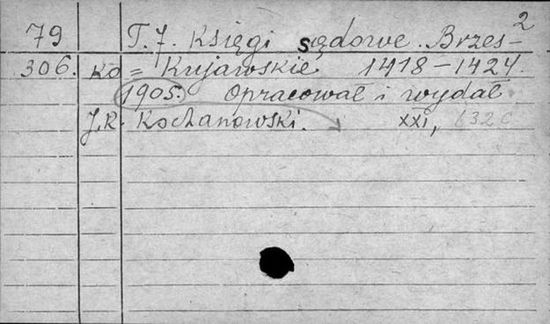 2
79 T.7. Księgi sądowe Brzes-
306. ko = Kujawskie 1418-1424.
1905. Opracował i wydał
J.K. Kochanowski. XXI, 632 c